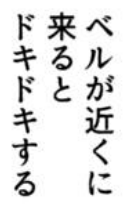 ベルが近くに
来ると
ドキドキする